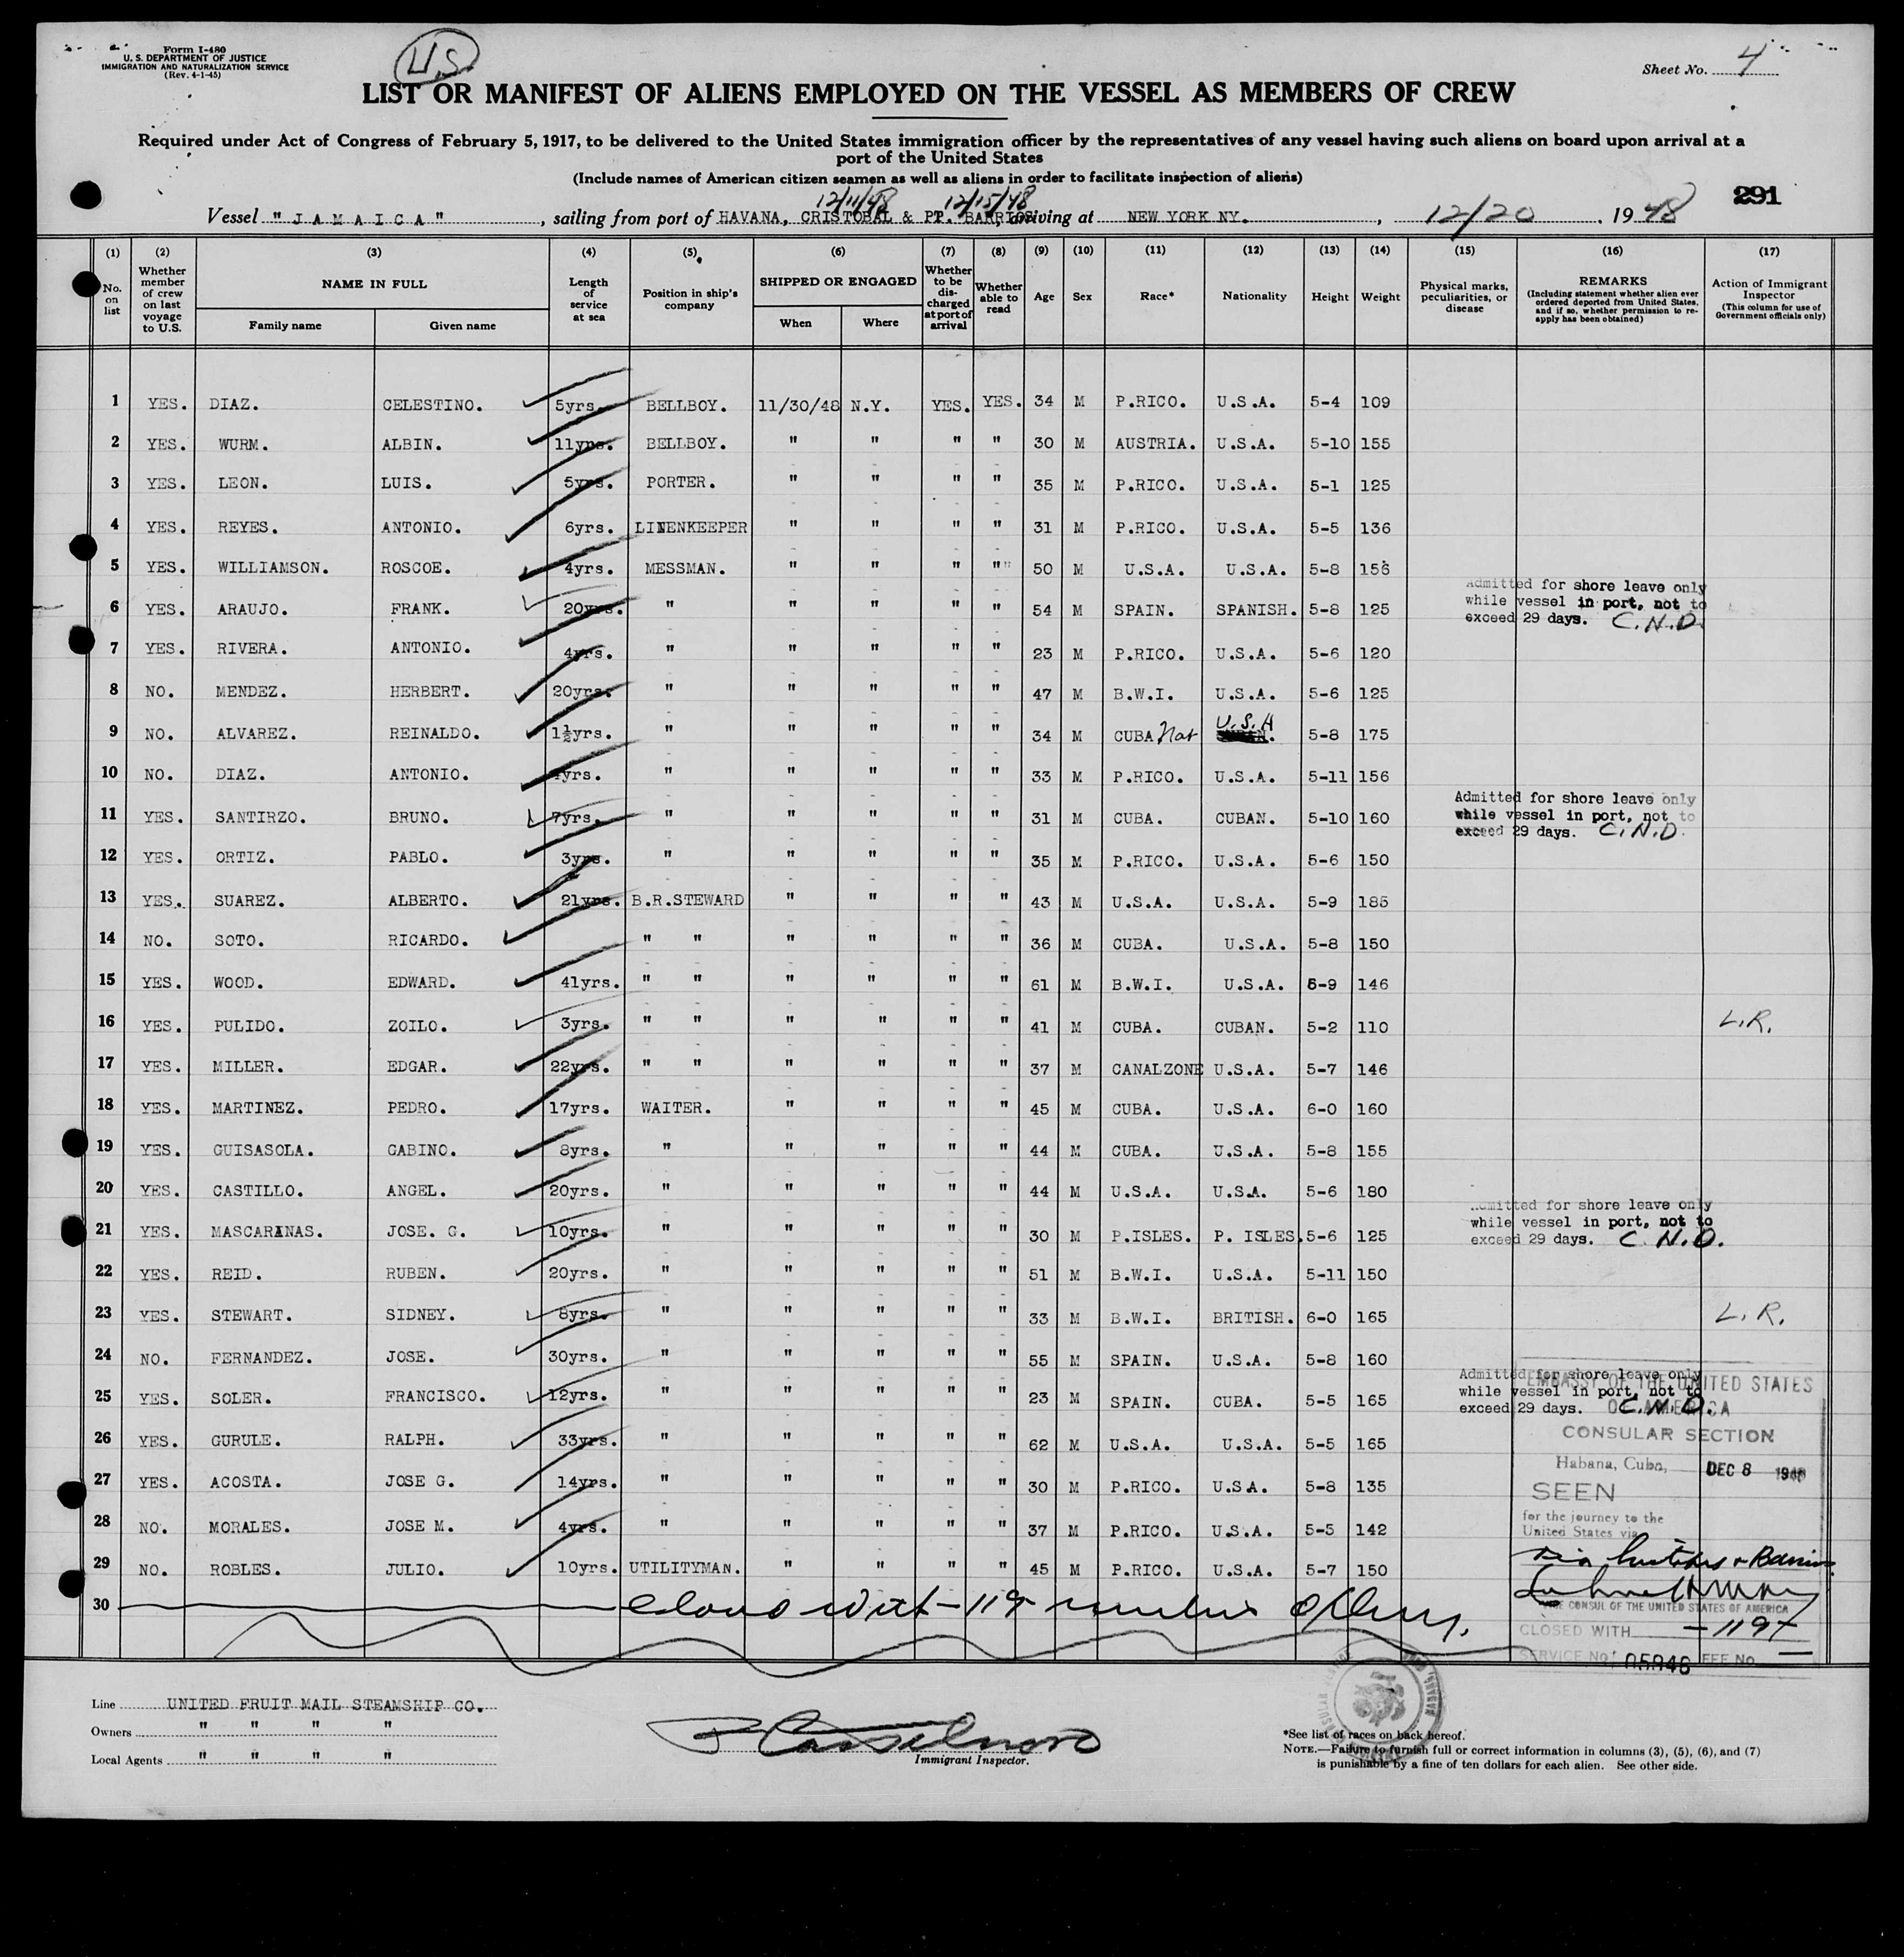 Form I-480
U. S. DEPARTMENT OF JUSTICE
IMMIGRATION AND NATURALIZATION SERVICE
(Rev. 4-1-45)
U.S.
Sheet No. 4
LIST OR MANIFEST OF ALIENS EMPLOYED ON THE VESSEL AS MEMBERS OF CREW
Required under Act of Congress of February 5, 1917, to be delivered to the United States immigration officer by the representatives of any vessel having such aliens on board upon arrival at a
port of the United States
(Include names of American citizen seamen as well as aliens in order to facilitate inspection of aliens)
12/11/48 12/15/48
291
Vessel "JAMAICA", sailing from port of HAVANA, CRISTOBAL & PT. BARRIOS arriving at NEW YORK NY., 12/20, 1948
(1) (2) (3) (4) (5) (6) (7) (8) (9) (10) (11) (12) (13) (14) (15) (16) (17)
No. on list
Whether member of crew on last voyage to U.S.
NAME IN FULL
Family name
Given name
Length of service at sea
Position in ship's company
SHIPPED OR ENGAGED
When
Where
Whether to be discharged at port of arrival
Whether able to read
Age
Sex
Race*
Nationality
Height
Weight
Physical marks, peculiarities, or disease
REMARKS
(Including statement whether alien ever ordered deported from United States, and if so, whether permission to reapply has been obtained)
Action of Immigrant Inspector
(This column for use of Government officials only)
1 YES. DIAZ. CELESTINO. 5yrs. BELLBOY. 11/30/48 N.Y. YES. YES. 34 M P.RICO. U.S.A. 5-4 109
2 YES. WURM. ALBIN. 11yrs. BELLBOY. " " " " 30 M AUSTRIA. U.S.A. 5-10 155
3 YES. LEON. LUIS. 5yrs. PORTER. " " " " 35 M P.RICO. U.S.A. 5-1 125
4 YES. REYES. ANTONIO. 6yrs. LINENKEEPER " " " " 31 M P.RICO. U.S.A. 5-5 136
5 YES. WILLIAMSON. ROSCOE. 4yrs. MESSMAN. " " " " 50 M U.S.A. U.S.A. 5-8 156
6 YES. ARAUJO. FRANK. 20yrs. " " " " " 54 M SPAIN. SPANISH. 5-8 125 Admitted for shore leave only while vessel in port, not to exceed 29 days. C.N.D.
7 YES. RIVERA. ANTONIO. 4yrs. " " " " " 23 M P.RICO. U.S.A. 5-6 120
8 NO. MENDEZ. HERBERT. 20yrs. " " " " " 47 M B.W.I. U.S.A. 5-6 125
9 NO. ALVAREZ. REINALDO. 1½yrs. " " " " " 34 M CUBA Nat U.S.A 5-8 175
10 NO. DIAZ. ANTONIO. yrs. " " " " " 33 M P.RICO. U.S.A. 5-11 156
11 YES. SANTIRZO. BRUNO. 7yrs. " " " " " 31 M CUBA. CUBAN. 5-10 160 Admitted for shore leave only while vessel in port, not to exceed 29 days. C.N.D.
12 YES. ORTIZ. PABLO. 3yrs. " " " " " 35 M P.RICO. U.S.A. 5-6 150
13 YES. SUAREZ. ALBERTO. 21yrs. B.R.STEWARD " " " " 43 M U.S.A. U.S.A. 5-9 185
14 NO. SOTO. RICARDO. " " " " " " 36 M CUBA. U.S.A. 5-8 150
15 YES. WOOD. EDWARD. 41yrs. " " " " " " 61 M B.W.I. U.S.A. 5-9 146
16 YES. PULIDO. ZOILO. 3yrs. " " " " " " 41 M CUBA. CUBAN. 5-2 110 L.R.
17 YES. MILLER. EDGAR. 22yrs. " " " " " " 37 M CANALZONE U.S.A. 5-7 146
18 YES. MARTINEZ. PEDRO. 17yrs. WAITER. " " " " 45 M CUBA. U.S.A. 6-0 160
19 YES. GUISASOLA. GABINO. 8yrs. " " " " " 44 M CUBA. U.S.A. 5-8 155
20 YES. CASTILLO. ANGEL. 20yrs. " " " " " 44 M U.S.A. U.S.A. 5-6 180
21 YES. MASCARINAS. JOSE. G. 10yrs. " " " " " 30 M P.ISLES. P. ISLES. 5-6 125 Admitted for shore leave only while vessel in port, not to exceed 29 days. C.N.D.
22 YES. REID. RUBEN. 20yrs. " " " " " 51 M B.W.I. U.S.A. 5-11 150
23 YES. STEWART. SIDNEY. 8yrs. " " " " " 33 M B.W.I. BRITISH. 6-0 165 L.R.
24 NO. FERNANDEZ. JOSE. 30yrs. " " " " " 55 M SPAIN. U.S.A. 5-8 160
25 YES. SOLER. FRANCISCO. 12yrs. " " " " " 23 M SPAIN. CUBA. 5-5 165 Admitted for shore leave only while vessel in port, not to exceed 29 days. C.N.D.
26 YES. GURULE. RALPH. 33yrs. " " " " " 62 M U.S.A. U.S.A. 5-5 165
27 YES. ACOSTA. JOSE G. 14yrs. " " " " " 30 M P.RICO. U.S.A. 5-8 135
28 NO. MORALES. JOSE M. 4yrs. " " " " " 37 M P.RICO. U.S.A. 5-5 142
29 NO. ROBLES. JULIO. 10yrs. UTILITYMAN. " " " " 45 M P.RICO. U.S.A. 5-7 150
30 with -119-
EMBASSY OF THE UNITED STATES
OF AMERICA
CONSULAR SECTION
Habana, Cuba, DEC 8 1948
SEEN
for the journey to the
United States via
VICE CONSUL OF THE UNITED STATES OF AMERICA
CLOSED WITH -119-
SERVICE No. 05946 FEE No.
Line UNITED FRUIT MAIL STEAMSHIP CO.
Owners " " " "
Local Agents " " " "
Immigrant Inspector.
*See list of races on back hereof.
NOTE.—Failure to furnish full or correct information in columns (3), (5), (6), and (7)
is punishable by a fine of ten dollars for each alien. See other side.